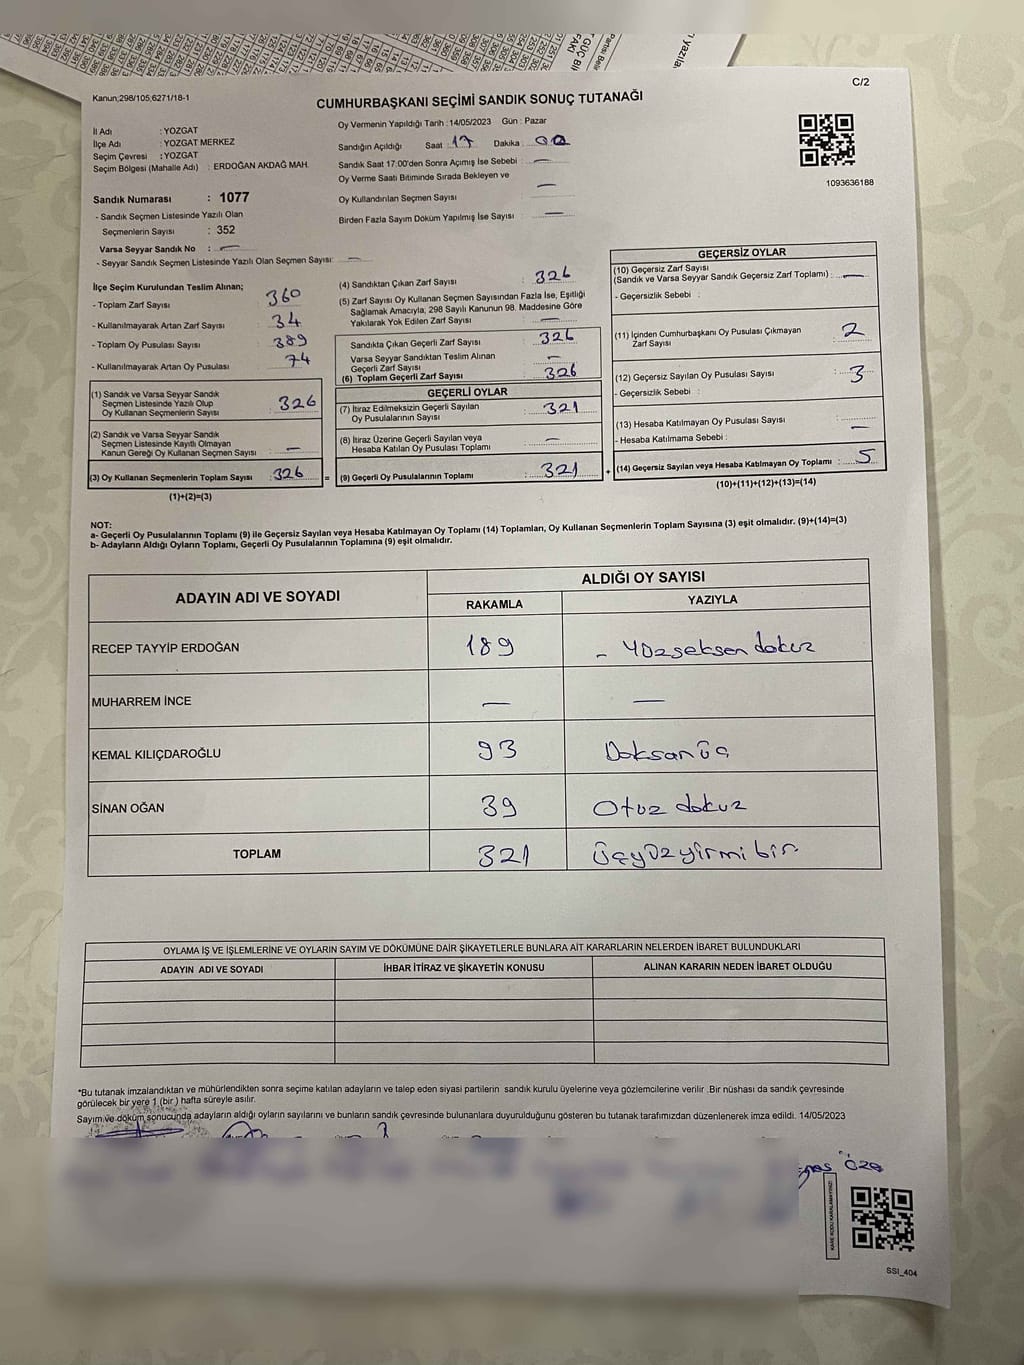 Kanun;298/105;6271/18-1
C/2
CUMHURBAŞKANI SEÇİMİ SANDIK SONUÇ TUTANAĞI
İl Adı : YOZGAT
İlçe Adı : YOZGAT MERKEZ
Seçim Çevresi : YOZGAT
Seçim Bölgesi (Mahalle Adı) : ERDOĞAN AKDAĞ MAH.
Sandık Numarası : 1077
- Sandık Seçmen Listesinde Yazılı Olan
Seçmenlerin Sayısı : 352
Varsa Seyyar Sandık No : —
- Seyyar Sandık Seçmen Listesinde Yazılı Olan Seçmen Sayısı: —
Oy Vermenin Yapıldığı Tarih :14/05/2023 Gün : Pazar
Sandığın Açıldığı Saat 17 Dakika 00
Sandık Saat 17:00'den Sonra Açımış İse Sebebi : —
Oy Verme Saati Bitiminde Sırada Bekleyen ve
Oy Kullandırılan Seçmen Sayısı : —
Birden Fazla Sayım Döküm Yapılmış İse Sayısı : —
1093636188
İlçe Seçim Kurulundan Teslim Alınan;
- Toplam Zarf Sayısı : 360
- Kullanılmayarak Artan Zarf Sayısı : 34
- Toplam Oy Pusulası Sayısı : 389
- Kullanılmayarak Artan Oy Pusulası : 74
(1) Sandık ve Varsa Seyyar Sandık
Seçmen Listesinde Yazılı Olup
Oy Kullanan Seçmenlerin Sayısı : 326
(2) Sandık ve Varsa Seyyar Sandık
Seçmen Listesinde Kayıtlı Olmayan
Kanun Gereği Oy Kullanan Seçmen Sayısı : —
(3) Oy Kullanan Seçmenlerin Toplam Sayısı : 326
(1)+(2)=(3)
(4) Sandıktan Çıkan Zarf Sayısı : 326
(5) Zarf Sayısı Oy Kullanan Seçmen Sayısından Fazla İse, Eşitliği
Sağlamak Amacıyla; 298 Sayılı Kanunun 98. Maddesine Göre
Yakılarak Yok Edilen Zarf Sayısı : —
Sandıkta Çıkan Geçerli Zarf Sayısı : 326
Varsa Seyyar Sandıktan Teslim Alınan
Geçerli Zarf Sayısı : —
(6) Toplam Geçerli Zarf Sayısı : 326
GEÇERLİ OYLAR
(7) İtiraz Edilmeksizin Geçerli Sayılan
Oy Pusulalarının Sayısı : 321
(8) İtiraz Üzerine Geçerli Sayılan veya
Hesaba Katılan Oy Pusulası Toplamı : —
= (9) Geçerli Oy Pusulalarının Toplamı : 321
GEÇERSİZ OYLAR
(10) Geçersiz Zarf Sayısı
(Sandık ve Varsa Seyyar Sandık Geçersiz Zarf Toplamı) : —
- Geçersizlik Sebebi :
(11) İçinden Cumhurbaşkanı Oy Pusulası Çıkmayan
Zarf Sayısı : 2
(12) Geçersiz Sayılan Oy Pusulası Sayısı : 3
- Geçersizlik Sebebi :
(13) Hesaba Katılmayan Oy Pusulası Sayısı : —
- Hesaba Katılmama Sebebi :
+ (14) Geçersiz Sayılan veya Hesaba Katılmayan Oy Toplamı : 5
(10)+(11)+(12)+(13)=(14)
NOT:
a- Geçerli Oy Pusulalarının Toplamı (9) ile Geçersiz Sayılan veya Hesaba Katılmayan Oy Toplamı (14) Toplamları, Oy Kullanan Seçmenlerin Toplam Sayısına (3) eşit olmalıdır. (9)+(14)=(3)
b- Adayların Aldığı Oyların Toplamı, Geçerli Oy Pusulalarının Toplamına (9) eşit olmalıdır.
ADAYIN ADI VE SOYADI
ALDIĞI OY SAYISI
RAKAMLA YAZIYLA
RECEP TAYYİP ERDOĞAN 189 - Yüzseksen dokuz
MUHARREM İNCE — —
KEMAL KILIÇDAROĞLU 93 Doksanüç
SİNAN OĞAN 39 Otuz dokuz
TOPLAM 321 Üçyüzyirmi bir
OYLAMA İŞ VE İŞLEMLERİNE VE OYLARIN SAYIM VE DÖKÜMÜNE DAİR ŞİKAYETLERLE BUNLARA AİT KARARLARIN NELERDEN İBARET BULUNDUKLARI
ADAYIN ADI VE SOYADI İHBAR İTİRAZ VE ŞİKAYETİN KONUSU ALINAN KARARIN NEDEN İBARET OLDUĞU
*Bu tutanak imzalandıktan ve mühürlendikten sonra seçime katılan adayların ve talep eden siyasi partilerin sandık kurulu üyelerine veya gözlemcilerine verilir .Bir nüshası da sandık çevresinde
görülecek bir yere 1 (bir ) hafta süreyle asılır.
Sayım ve döküm sonucunda adayların aldığı oyların sayılarını ve bunların sandık çevresinde bulunanlara duyurulduğunu gösteren bu tutanak tarafımızdan düzenlenerek imza edildi. 14/05/2023
SSI_404